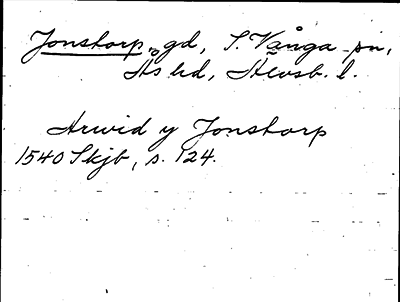 Jonstorp, gd, S. Vånga sn,
Ås hd, Älvsb. l.
Arwid y Jonstorp
1540 Skjb, s. 124.